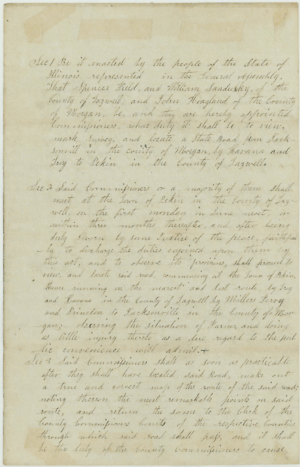 Sec 1 Be it enacted by the people of the State of
Illinois represented in the General Assembly
That Spencer Field, and William Sandusky, of the
County of Tazwell, and John Hoagland of the County
of Morgan, be, and they are hereby appointed
Commissioners, whose duty it shall be to view
mark, survey, and locate a State road from Jack
sonvill in the county of Morgan, by Havana and
to Pekin in the County of Tazwell
Sec 2 Said Commissioners or a majority of them shall
meet at the town of Pekin in the County of Taz
well, on the first monday in June next, or
within three months thereafter, and, after being
duly sworn by some Justice of the Peace, faithfully
to discharge the duties required upon them by
this act, and to observe its provisions, shall proceed to
view and locate said road, commencing at the town of Pekin,
thence running on the nearest and best route by
and Havana in the County of Tazwell by Millers Ferry
and Princeton to Jacksonville in the County of Mor
gan, observing the situation of Farms and doing
as little injury thereto, as a due regard to the pub
lic convenience will admit
Sec 3 Said Commissioners shall as soon as practicable
after they shall have located said Road, make out
a true and correct map of the route of the said road,
noting thereon the most remarkable points in said
route, and return the same to the Clerk of the
County Commissioners Courts of the respective Counties
through which said road shall pass, and it shall
be the duty of the county commissioners to cause